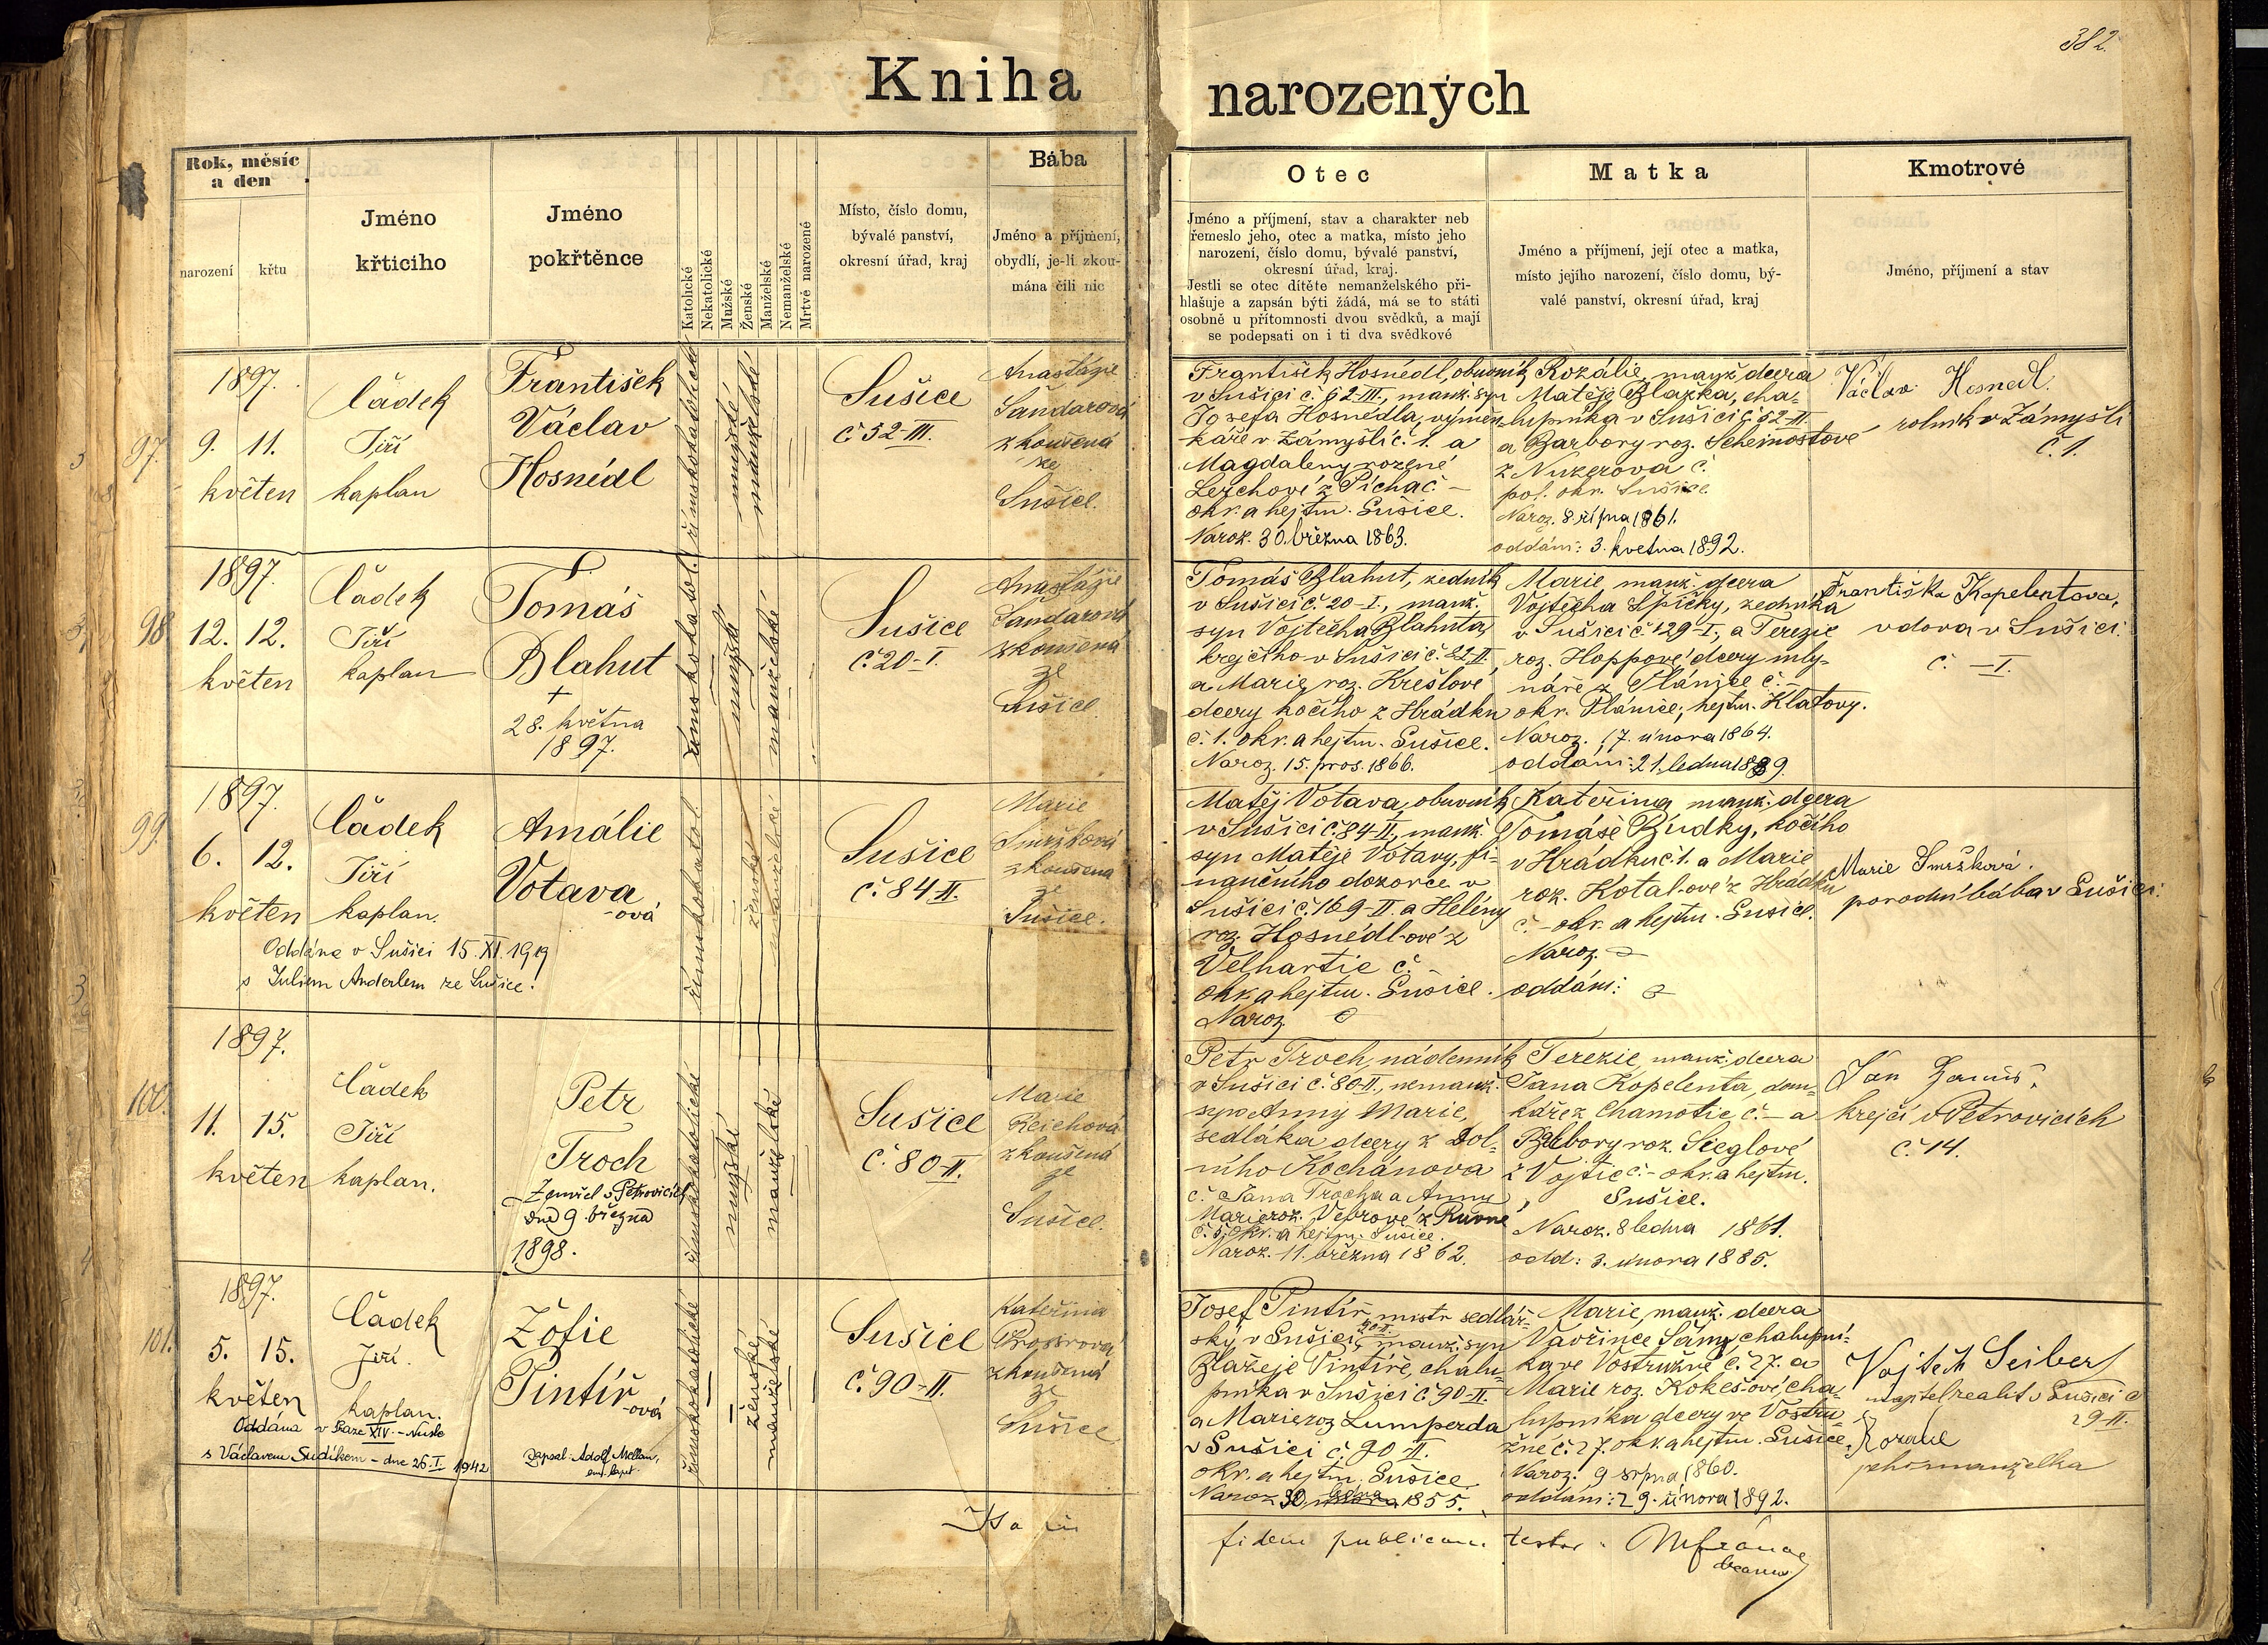 382.
Kniha narozených
Rok, měsíc
a den
narození
křtu
Jméno
křticího
Jméno
pokřtěnce
Katolické
Nekatolické
Mužské
Ženské
Manželské
Nemanželské
Mrtvě narozené
Místo, číslo domu,
bývalé panství,
okresní úřad, kraj
Bába
Jméno a příjmení,
obydlí, je-li zkou-
mána čili nic
Otec
Jméno a příjmení, stav a charakter neb
řemeslo jeho, otec a matka, místo jeho
narození, číslo domu, bývalé panství,
okresní úřad, kraj.
Jestli se otec dítěte nemanželského při-
hlašuje a zapsán býti žádá, má se to státi
osobně u přítomnosti dvou svědků, a mají
se podepsati on i ti dva svědkové
Matka
Jméno a příjmení, její otec a matka,
místo jejího narození, číslo domu, bý-
valé panství, okresní úřad, kraj
Kmotrové
Jméno, příjmení a stav
97.
1897.
9. 11.
květen
Čádek
Jiří
kaplan
František
Václav
Hosnédl
římskokatolické
mužské
manželské
Sušice
č 52-III.
Anastázie
Šandarová
zkoušená
ze
Sušice.
František Hosnédl, obuvník
v Sušici č. 62-III., manž. syn
Josefa Hosnédla, výměn-
káře v Zámyšli č. 1. a
Magdaleny rozené
Lerchové z Píchač –
okr. a hejtm. Sušice.
Naroz. 30. března 1863.
Rozálie, manž. dcera
Matěje Blažka, cha-
lupníka v Sušici č 52-III
a Barbory roz. Scheinostové
z Nuzerova č.
pol. okr. Sušice.
Naroz. 8. října 1861.
oddáni: 3. května 1892.
Václav Hosnedl.
rolník v Zámyšli
č. 1.
98.
1897.
12. 12.
květen
Čádek
Jiří
kaplan
Tomáš
Blahut
+
28. května
1897.
římskokatol.
mužské
manželské
Sušice
č. 20-I.
Anastázie
Šandarová
zkoušená
ze
Sušice.
Tomáš Blahut, zedník
v Sušici č. 20-I., manž.
syn Vojtěcha Blahuta,
krejčího v Sušici č. 22-II.
a Marie, roz. Krešlové
dcery kočího z Hrádku
č. 1. okr. a hejtm. Sušice.
Naroz. 15. pros. 1866.
Marie, manž. dcera
Vojtěcha Špičky, zedníka
v Sušici č 129-I., a Terezie
roz. Hoppové, dcery mly-
náře z Plánice č. –
okr. Plánice, hejtm. Klatovy.
Naroz. 17. února 1864.
oddáni: 21. ledna 1889.
Františka Kapelentova,
vdova v Sušici.
č. – I.
99.
1897.
6. 12.
květen
Čádek
Jiří
kaplan.
Amálie
Votava
-ová
Oddána v Sušici 15. XI. 1919
s Juliem Anderlem ze Sušice.
římskokatol.
ženské
manželské
Sušice
č. 84-II.
Marie
Smržková
zkoušená
ze
Sušice.
Matěj Votava, obuvník
v Sušici č. 84-II., manž.
syn Matěje Votavy, fi-
nančního dozorce v
Sušici č. 169-II. a Helény
roz. Hosnédl-ové z
Velhartic č. –
okr. a hejtm. Sušice.
Naroz.
Kateřina, manž. dcera
Tomáše Búdky, kočího
v Hrádku č. 1. a Marie
roz. Kotal-ové z Hrádku
č. – okr. a hejtm. Sušice.
Naroz.
oddáni:
Marie Smržková.
porodní bába v Sušici.
100.
1897.
11. 15.
květen
Čádek
Jiří
kaplan.
Petr
Troch
Zemřel v Petrovicích
dne 9. března
1898.
římskokatolické
mužské
manželské
Sušice
č. 80-II.
Marie
Reichová
zkoušená
ze
Sušice.
Petr Troch, nádenník
v Sušici č. 80-II., nemanž.
syn Anny Marie,
sedláka dcery z Dol-
ního Kochánova
č. Jana Trocha a Anny
Marie roz. Vebrové z Rovné
č. 5. okr. a hejtm. Sušice.
Naroz. 11. března 1862.
Terezie, manž. dcera
Jana Kopelenta, dom-
káře z Chamutic č. – a
Barbory roz. Sieglové
z Vojtic č. – okr. a hejtm.
Sušice.
Naroz. 8. ledna 1861.
odd: 3. února 1885.
Jan
krejčí v Petrovicích
č. 14.
101.
1897.
5. 15.
květen
Čádek
Jiří.
kaplan.
Oddána v Praze XIV. – Nusle
s Václavem Sudíkem – dne 26. I. 1942
Žofie
Pintíř
-ová
zapsal: Adolf Mellan,
římskokatolické
ženské
manželské
Sušice
č. 90-II.
Kateřina
zkoušená
ze
Sušice
Josef Pintíř, mistr sedlář-
ský v Sušici, manž. syn
Blažeje Pintíře, chalu-
pníka v Sušici č 90-II.
a Marie roz Lumperda
v Sušici č. 90-II.
okr. a hejtm. Sušice
Naroz. 30. ledna 1855.
Marie, manž. dcera
Vavřince Sámy, chalupní-
ka ve Vostružné č. 27. a
Marie roz. Kokeš-ové, cha-
lupníka dcery ve Vostru-
žné č. 27. okr. a hejtm. Sušice.
Naroz. 9 srpna 1860.
oddáni: 29. února 1892.
Vojtěch Seibert
majitel realit v Sušici č
29-II.
Rozalie
jeho manželka
Ita in
fidem publicam testor.